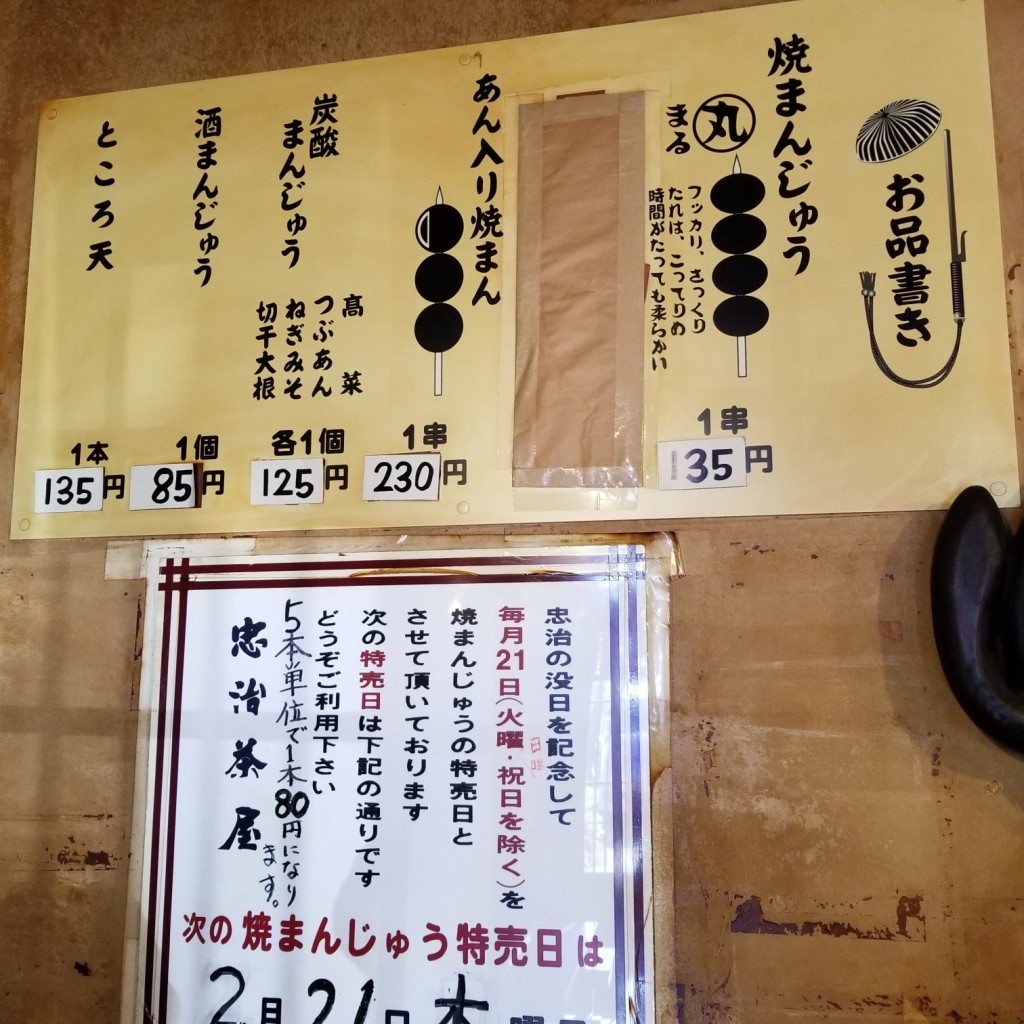 お品書き
焼まんじゅう
丸
まる
フッカリ、さっくり
たれは、こってりめ
時間がたっても柔らかい
1串
135円
あん入り焼まん
1串
230円
炭酸
まんじゅう
高菜
つぶあん
ねぎみそ
切干大根
各1個
125円
酒まんじゅう
1個
85円
ところ天
1本
135円
忠治の没日を記念して
毎月21日(火曜・祝日を除く)を
日曜
焼まんじゅうの特売日と
させて頂いております
次の特売日は下記の通りです
どうぞご利用下さい
5本単位で1本80円になり
ます。
忠治茶屋
次の焼まんじゅう特売日は
2月21日木曜日